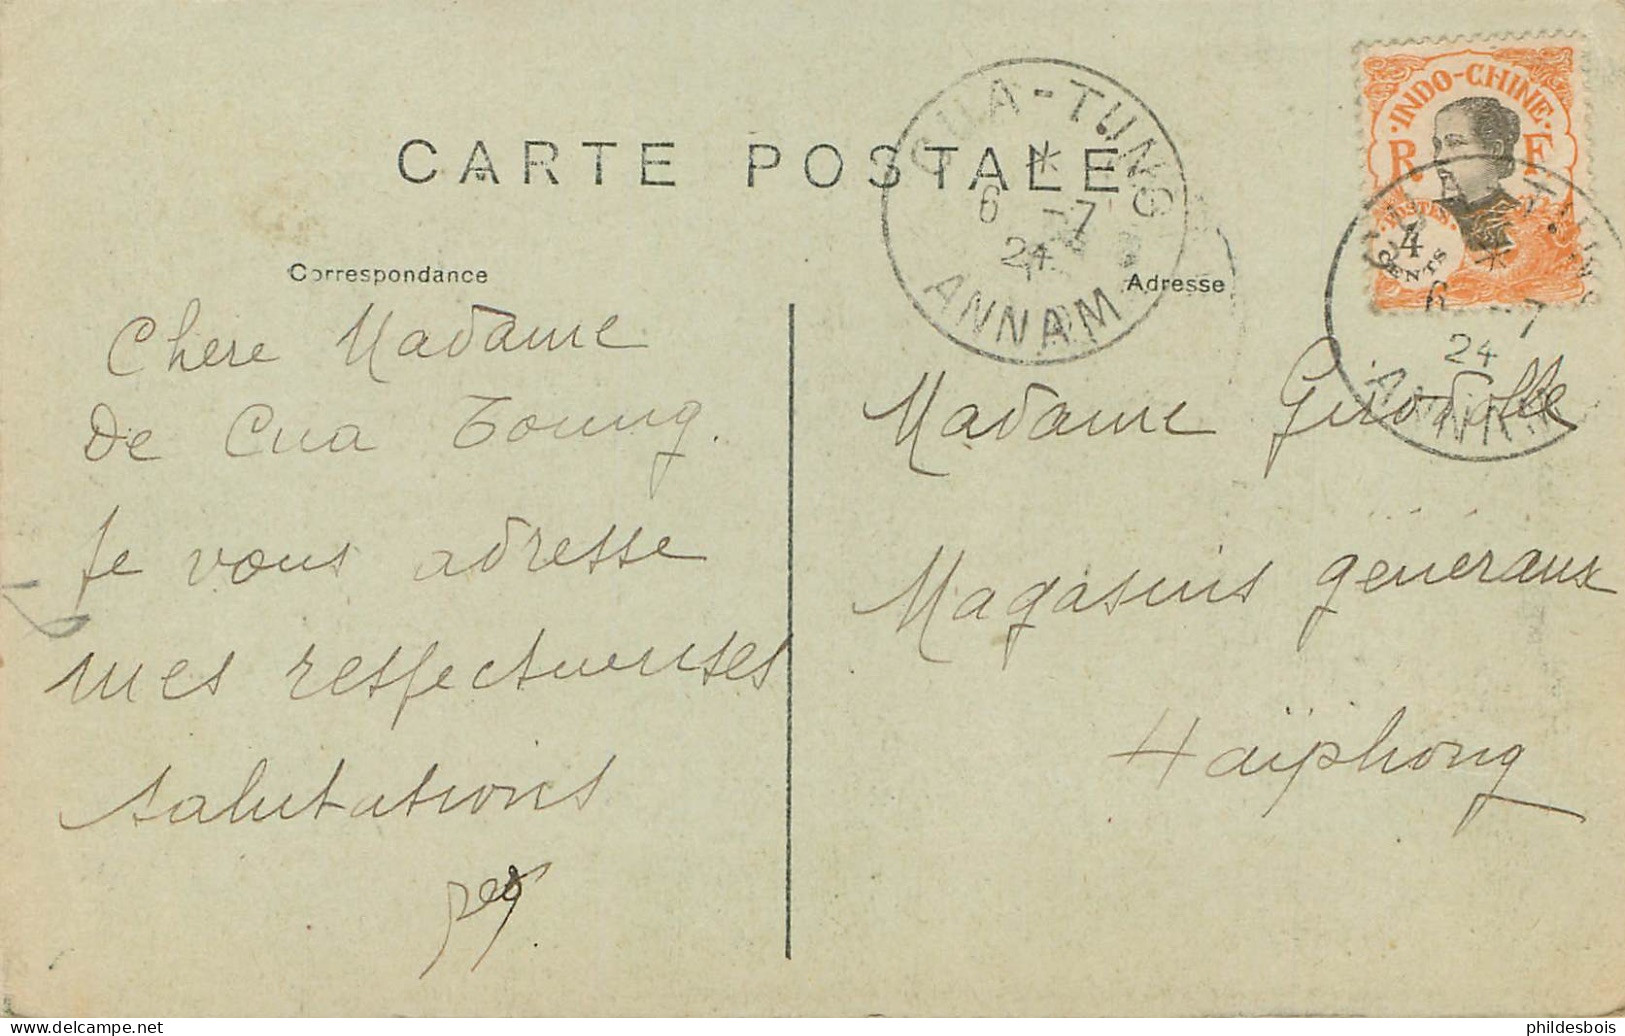 CARTE POSTALE
Correspondance
Adresse
CUA-TUNG
*
6 -7
24
ANNAM
INDO-CHINE
R F
POSTES
4
CENTS
CUA-TUNG
*
6 -7
24
ANNAM
Chere Madame
De Cua Toung.
Je vous adresse
mes respectueuses
salutations
Madame Girodolle
Magasins généraux
Haïphong
www.delcampe.net
phildesbois